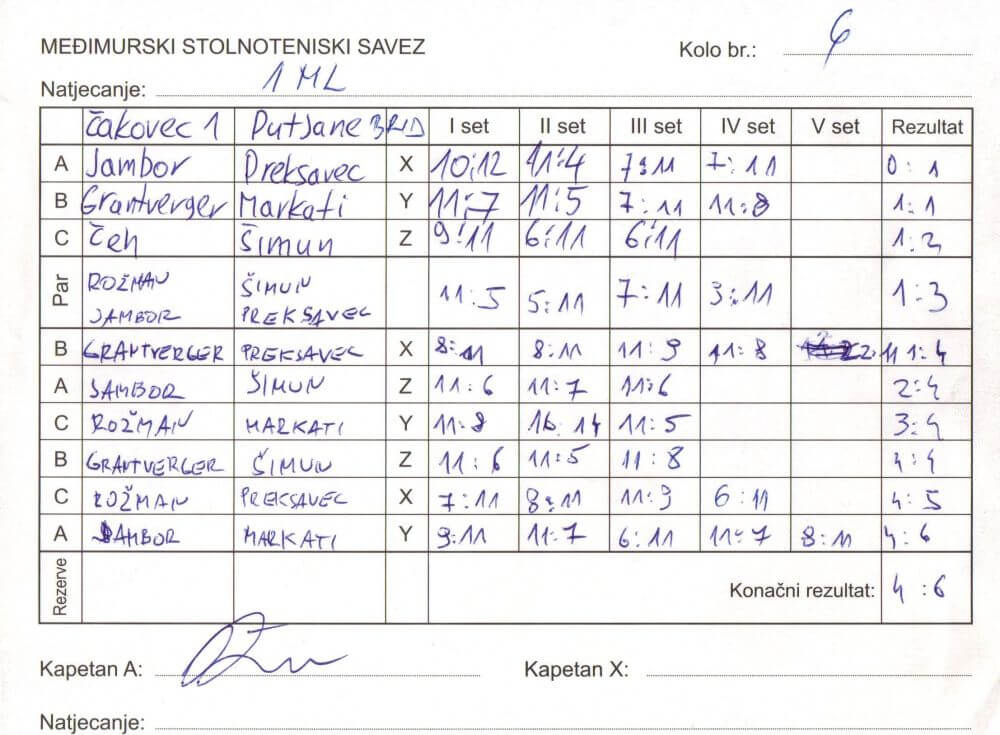 MEĐIMURSKI STOLNOTENISKI SAVEZ
Kolo br.: 6
Natjecanje: 1 ML
Čakovec 1 Putjane BRID I set II set III set IV set V set Rezultat
A Jambor Preksavec X 10:12 11:4 7:11 7:11 0:1
B Grantverger Markati Y 11:7 11:5 7:11 11:8 1:1
C Čeh Šimun Z 9:11 6:11 6:11 1:2
Par ROŽMAN ŠIMUN 11:5 5:11 7:11 3:11 1:3
JAMBOR PREKSAVEC
B GRANTVERGER PREKSAVEC X 8:11 8:11 11:9 11:8 1:4
A JAMBOR ŠIMUN Z 11:6 11:7 11:6 2:4
C ROŽMAN MARKATI Y 11:8 16:14 11:5 3:4
B GRANTVERGER ŠIMUN Z 11:6 11:5 11:8 4:4
C ROŽMAN PREKSAVEC X 7:11 8:11 11:9 6:11 4:5
A JAMBOR MARKATI Y 9:11 11:7 6:11 11:7 8:11 4:6
Rezerve Konačni rezultat: 4:6
Kapetan A: Kapetan X:
Natjecanje: